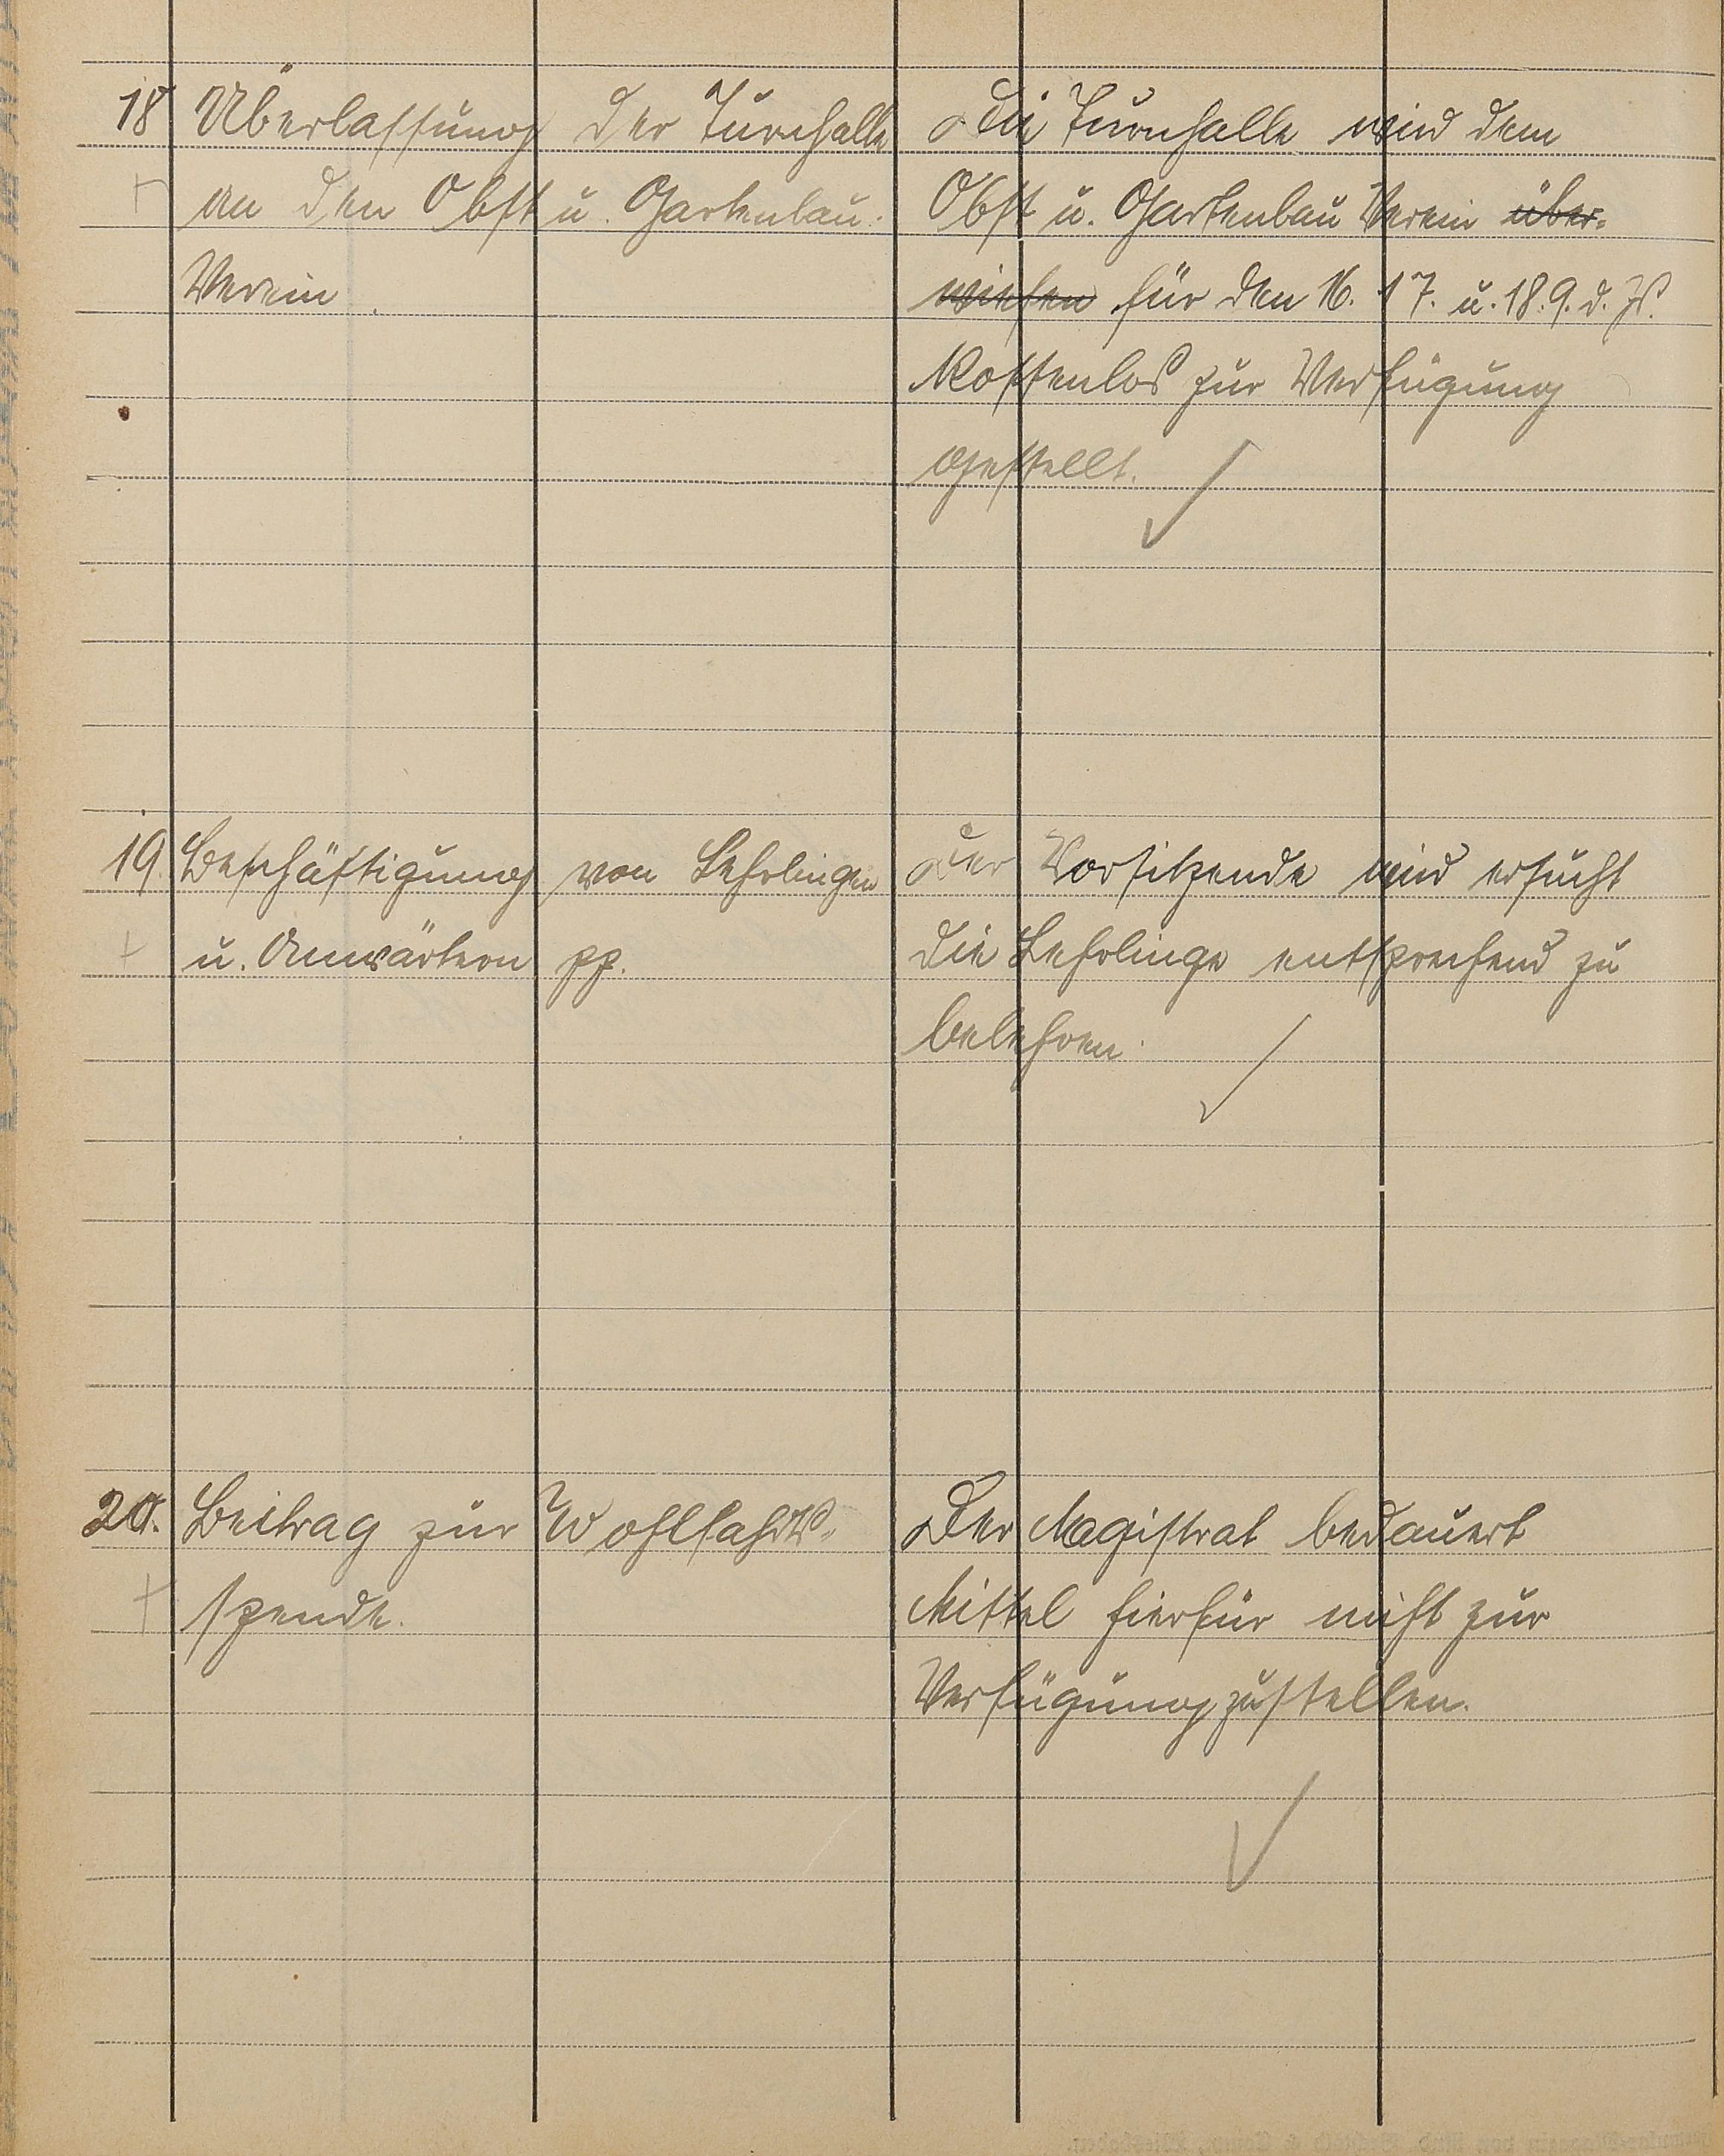 18 Überlassung der Turnhalle
an den Obst u. Gartenbau-
Verein.
Die Turnhalle wird dem
Obst u. Gartenbau Verein über-
wiesen für den 16. 17. u. 18.9. d. Js.
kostenlos zur Verfügung
gestellt.
19. Beschäftigung von Lehrlingen
u. Anwärtern pp.
Der Vorsitzende wird ersucht
die Lehrlinge entsprechend zu
belehren.
20. Beitrag zur Wohlfahrts-
spende.
Der Magistrat bedauert
Mittel hierfür nicht zur
Verfügung zustellen.